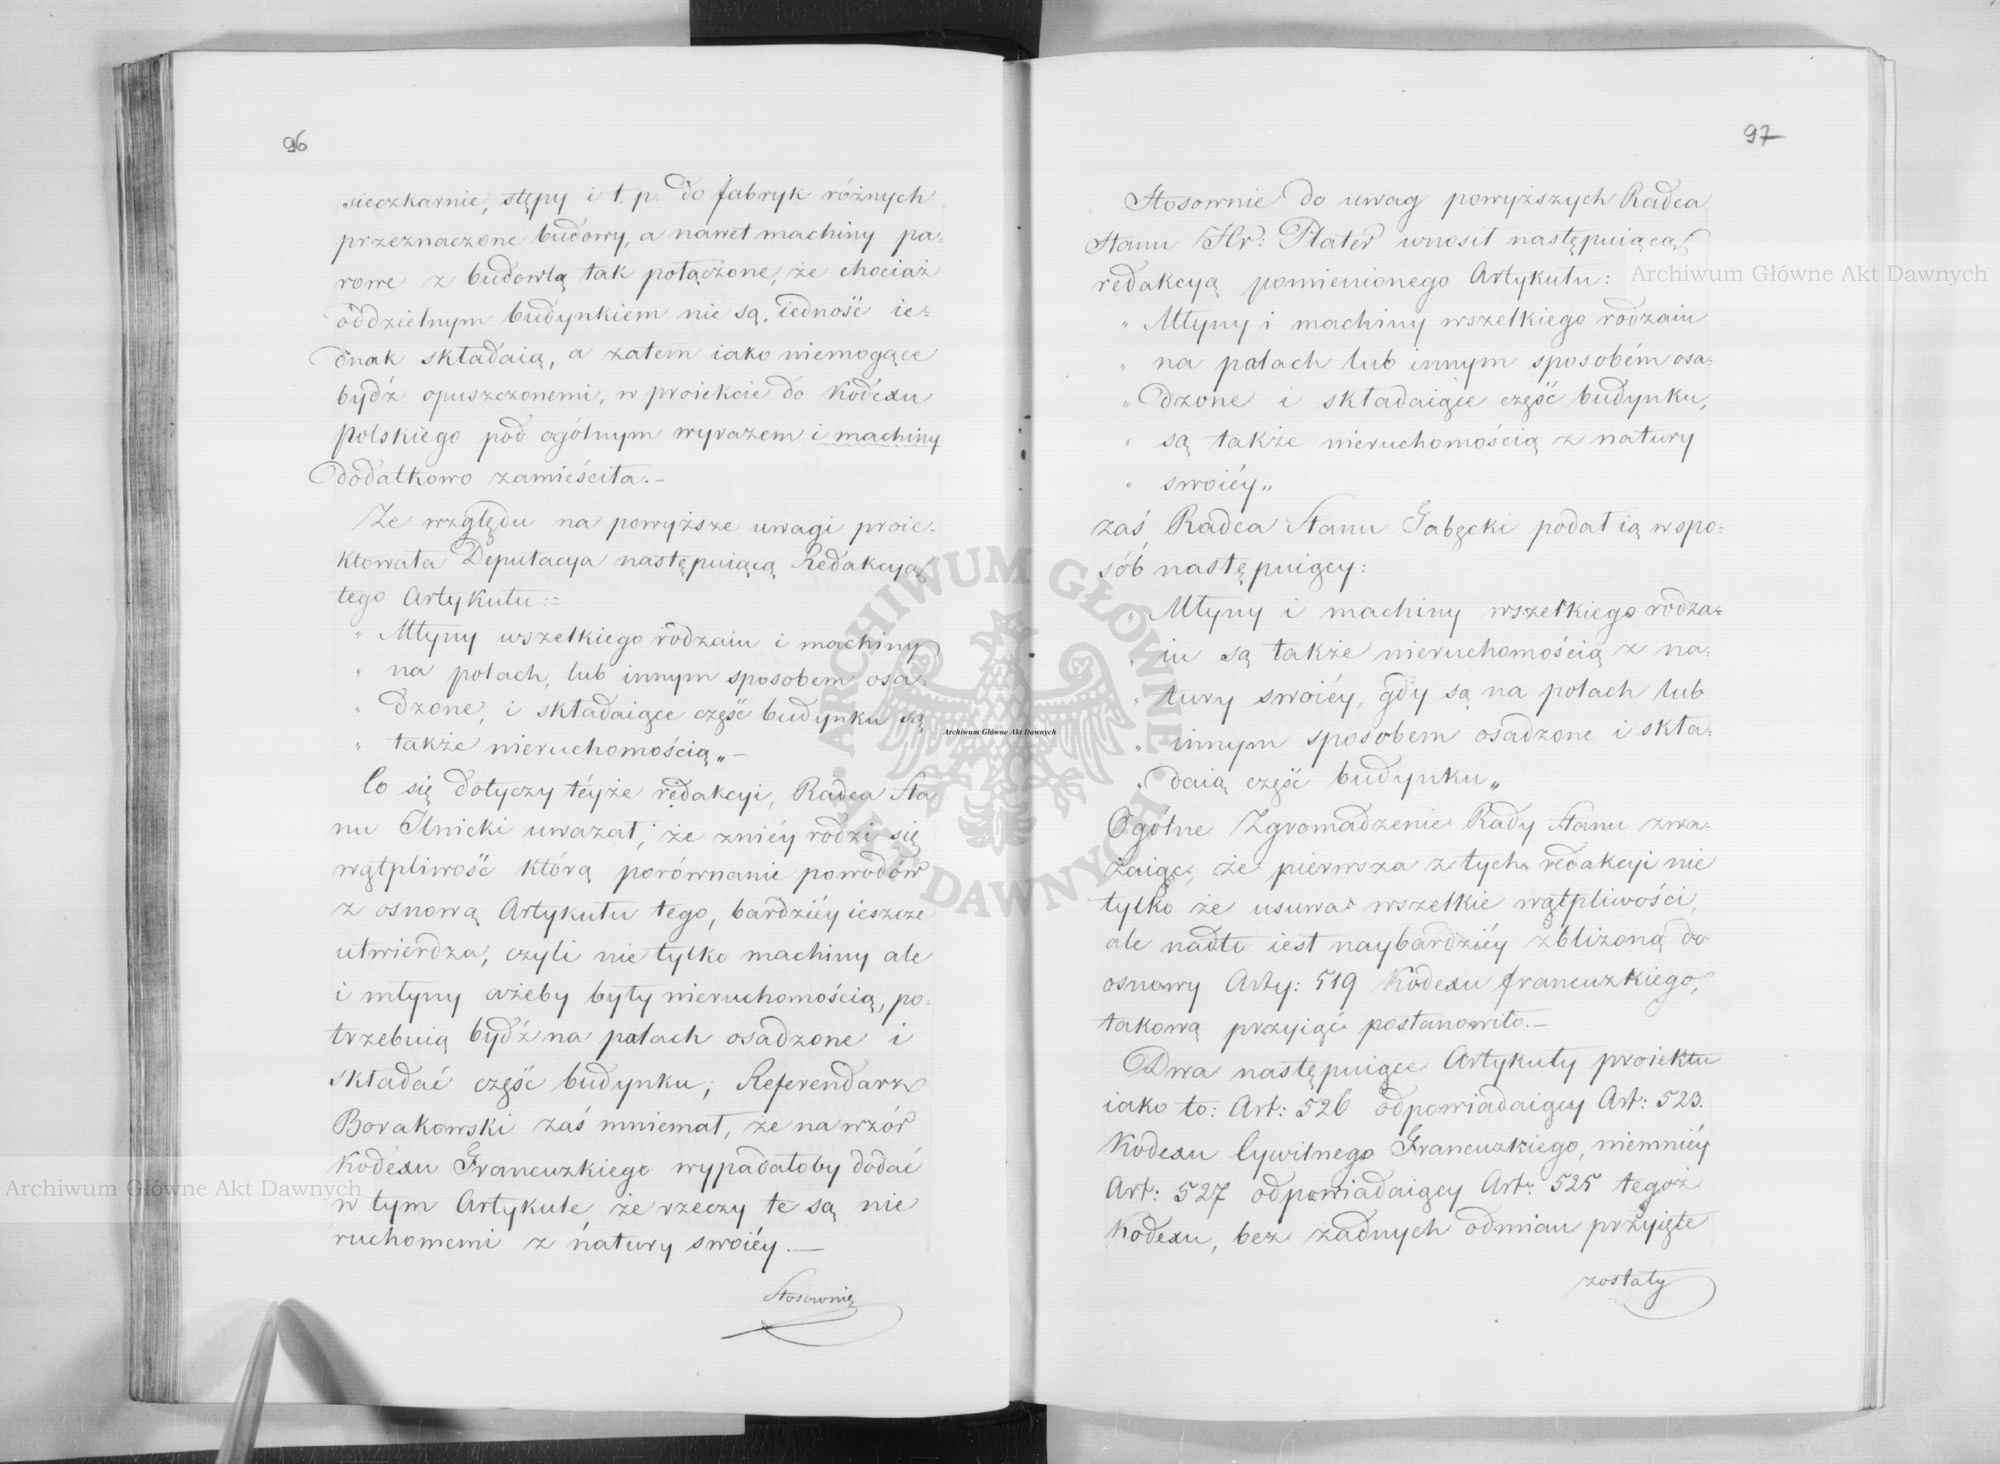 96
sieczkarnie, stępy i t. p. do fabryk różnych
przeznaczone budowy, a nawet machiny pa-
rowe z budowlą tak połączone, że chociaż
oddzielnym budynkiem nie są, iedność ie-
dnak składaią, a zatem iako niemogące
bydź opuszczonemi, w proiekcie do Kodexu
polskiego pod ogólnym wyrazem i machiny
dodatkowo zamieściła.-
Ze względu na powyższe uwagi proie-
ktowała Deputacya następuiącą Redakcyą
tego Artykułu:=
" Młyny wszelkiego rodzaiu i machiny
" na palach, lub innym sposobem osa-
" dzone, i składaiące część budynku są
" także nieruchomością„ -
Co się dotyczy téyże redakcyi, Radca Sta-
nu Ilnicki uważał, że zniéy rodzi się
wątpliwość którą porównanie powodów
z osnową Artykułu tego, bardziéy ieszcze
utwierdza, czyli nie tylko machiny ale
i młyny ażeby były nieruchomością, po-
trzebuią bydź na palach osadzone i
składać część budynku; Referendarz
Borakowski zaś mniemał, że na wzór
Kodexu Francuzkiego wypadałoby dodać
w tym Artykule że rzeczy te są nie
ruchomemi z natury swoiéy. —
Stosownie
97
Stosownie do uwag powyższych Radca
Stanu Hr: Plater wnosił następuiącą
redakcyą pomienionego Artykułu:
" Młyny i machiny wszelkiego rodzaiu
" na palach lub innym sposobém osa-
" dzone i składaiące część budynku,
" są także nieruchomością z natury
" swoiéy„
zaś Radca Stanu Gałęcki podał ią wspo-
sób następuiący:
" Młyny i machiny wszelkiego rodza-
" iu są także nieruchomością z na-
" tury swoiéy, gdy są na palach lub
" innym sposobem osadzone i skła-
" daią część budynku„
Ogólne Zgromadzenie Rady Stanu zwa-
żaiąc, że pierwsza z tych redakcyi nie
tylko że usuwa wszelkie wątpliwości,
ale nadto iest naybardziéy zbliżoną do
osnowy Arty: 519 Kodexu francuzkiego,
takową przyiąć postanowiło.-
Dwa następuiące Artykuły proiektu
iako to: Art: 526 odpowiadaiący Art: 523.
Kodexu Cywilnego Francuzkiego, niemniéy
Art: 527 odpowiadaiący Art: 525 tegoż
Kodexu, bez żadnych odmian przyięte
zostały
Archiwum Główne Akt Dawnych
Archiwum Główne Akt Dawnych
Archiwum Główne Akt Dawnych
ARCHIWUM GŁÓWNE AKT DAWNYCH